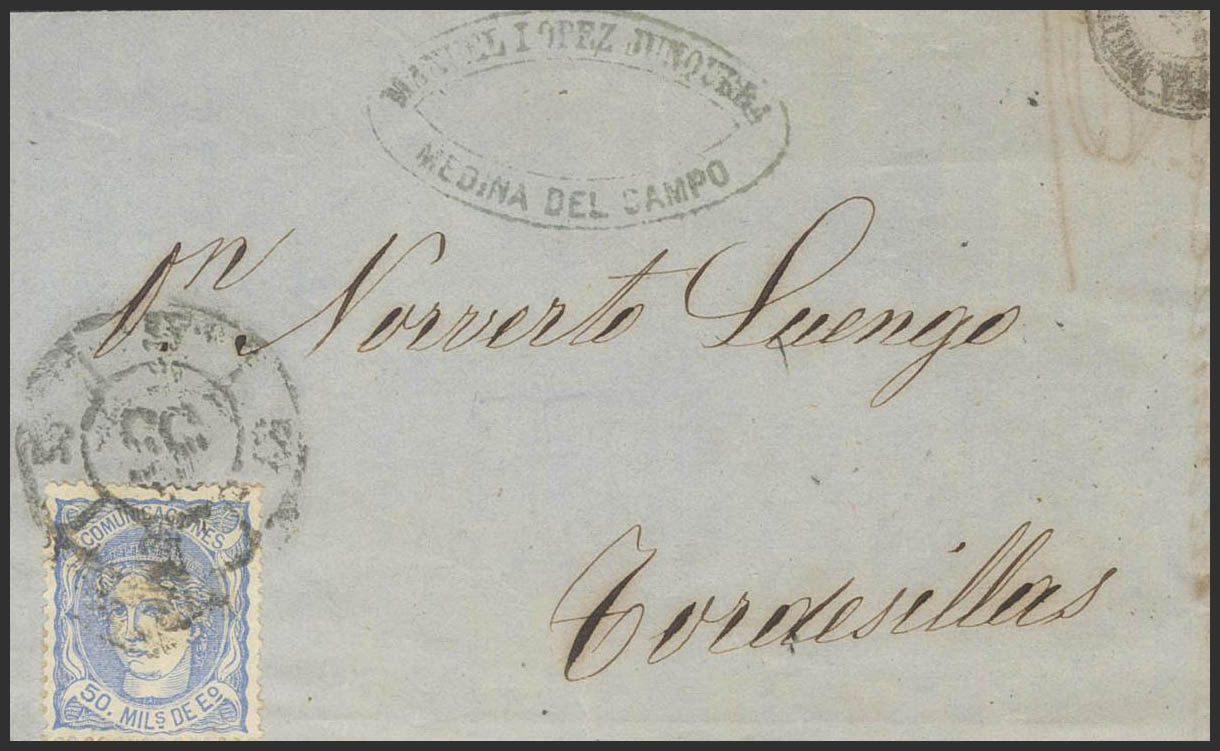 MANUEL LOPEZ JUNQUERA
MEDINA DEL CAMPO
Dn. Norverto Luengo
Tordesillas
COMUNICACIONES
50. MILS DE Eº